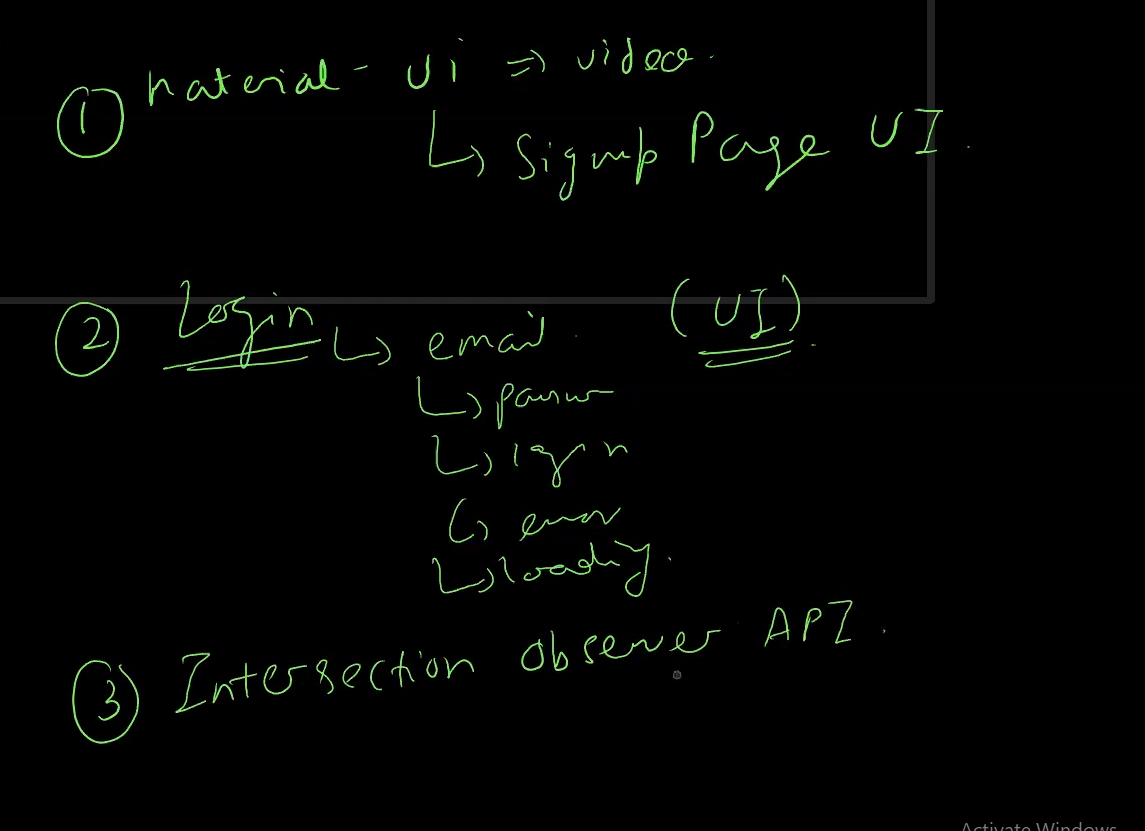 ① Material-Ui => video.
↳ Signup Page UI.
② Login ↳ email. (UI).
↳ passw
↳ login
↳ error
↳ loading.
③ Intersection Observer API.
Activate Windows